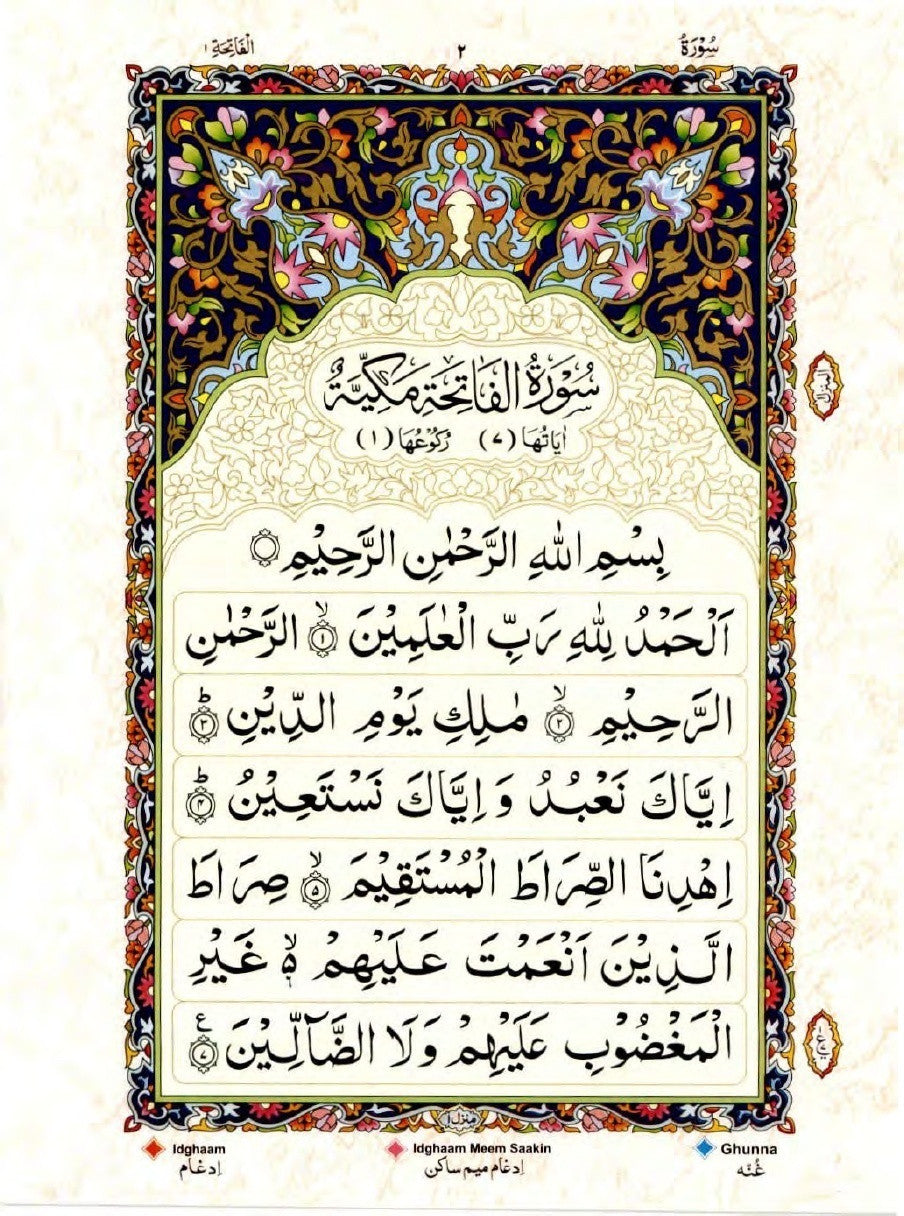 سُوْرَةُ ٢ الْفَاتِحَةِ ١
سُوْرَةُ الْفَاتِحَةِ مَكِّيَّةٌ
اٰيَاتُهَا (٧) رُكُوْعُهَا (١)
بِسْمِ اللهِ الرَّحْمٰنِ الرَّحِيْمِ
اَلْحَمْدُ لِلّٰهِ رَبِّ الْعٰلَمِيْنَ ۙ ١ الرَّحْمٰنِ
الرَّحِيْمِ ۙ ٢ مٰلِكِ يَوْمِ الدِّيْنِ ؕ ٣
اِيَّاكَ نَعْبُدُ وَ اِيَّاكَ نَسْتَعِيْنُ ؕ ٤
اِهْدِنَا الصِّرَاطَ الْمُسْتَقِيْمَ ۙ ٥ صِرَاطَ
الَّذِيْنَ اَنْعَمْتَ عَلَيْهِمْ ۙ ۵ غَيْرِ
الْمَغْضُوْبِ عَلَيْهِمْ وَلَا الضَّآلِّيْنَ ع ٧
منزل ١
Idghaam Idghaam Meem Saakin Ghunna
اِدغام اِدغام ميم ساكن غُنّه